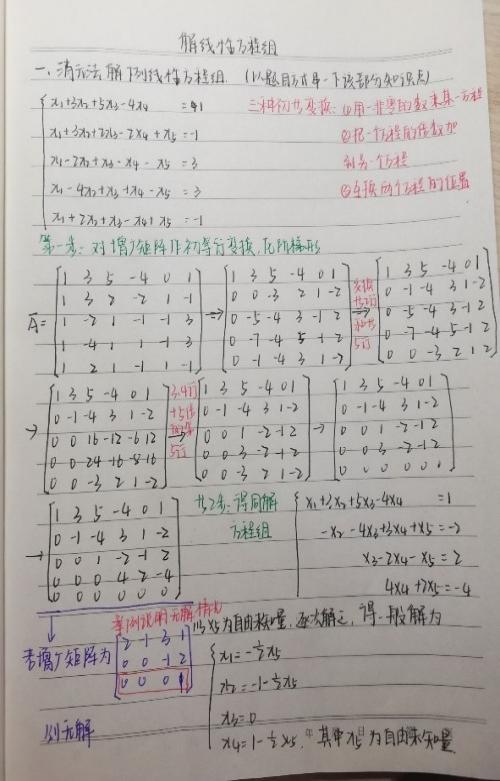 解线性方程组
一、消元法解下列线性方程组. (以题目方式串一下该部分知识点)
x₁+3x₂+5x₃-4x₄ =1
x₁+3x₂+2x₃-2x₄+x₅=-1
x₁-2x₂+x₃-x₄-x₅=3
x₁-4x₂+x₃+x₄-x₅=3
x₁+2x₂+x₃-x₄+x₅=-1
三种初等变换: ①用一非零的数乘某一方程
②把一个方程的倍数加
到另一个方程
③互换两个方程的位置
第一步: 对增广矩阵作初等行变换,化阶梯形
Ā=
1 3 5 -4 0 1
1 3 2 -2 1 -1
1 -2 1 -1 -1 3
1 -4 1 1 -1 3
1 2 1 -1 1 -1
→
1 3 5 -4 0 1
0 0 -3 2 1 -2
0 -5 -4 3 -1 2
0 -7 -4 5 -1 2
0 -1 -4 3 1 -2
交换
第2行
和第
5行
→
1 3 5 -4 0 1
0 -1 -4 3 1 -2
0 -5 -4 3 -1 2
0 -7 -4 5 -1 2
0 0 -3 2 1 2
→
1 3 5 -4 0 1
0 -1 -4 3 1 -2
0 0 16 -12 -6 12
0 0 24 -16 -8 16
0 0 -3 2 1 -2
3,4行
5行
→
1 3 5 -4 0 1
0 -1 -4 3 1 -2
0 0 1 -2 -1 2
0 0 3 -2 -1 2
0 0 -3 2 1 -2
→
1 3 5 -4 0 1
0 -1 -4 3 1 -2
0 0 1 -2 -1 2
0 0 3 -2 -1 2
0 0 0 0 0 0
→
1 3 5 -4 0 1
0 -1 -4 3 1 -2
0 0 1 -2 -1 2
0 0 0 4 2 -4
0 0 0 0 0 0
第2步: 得同解
方程组
x₁+3x₂+5x₃-4x₄ =1
-x₂-4x₃+3x₄+x₅=-2
x₃-2x₄-x₅=2
4x₄+2x₅=-4
举例说明无解情况
若增广矩阵为
2 -1 3 1
0 0 -1 2
0 0 0 1
则无解
以x₅为自由未知量,逐次解之,得一般解为
x₁=-½x₅
x₂=-1-½x₅
x₃=0
x₄=1-½x₅. 其中x₅为自由未知量